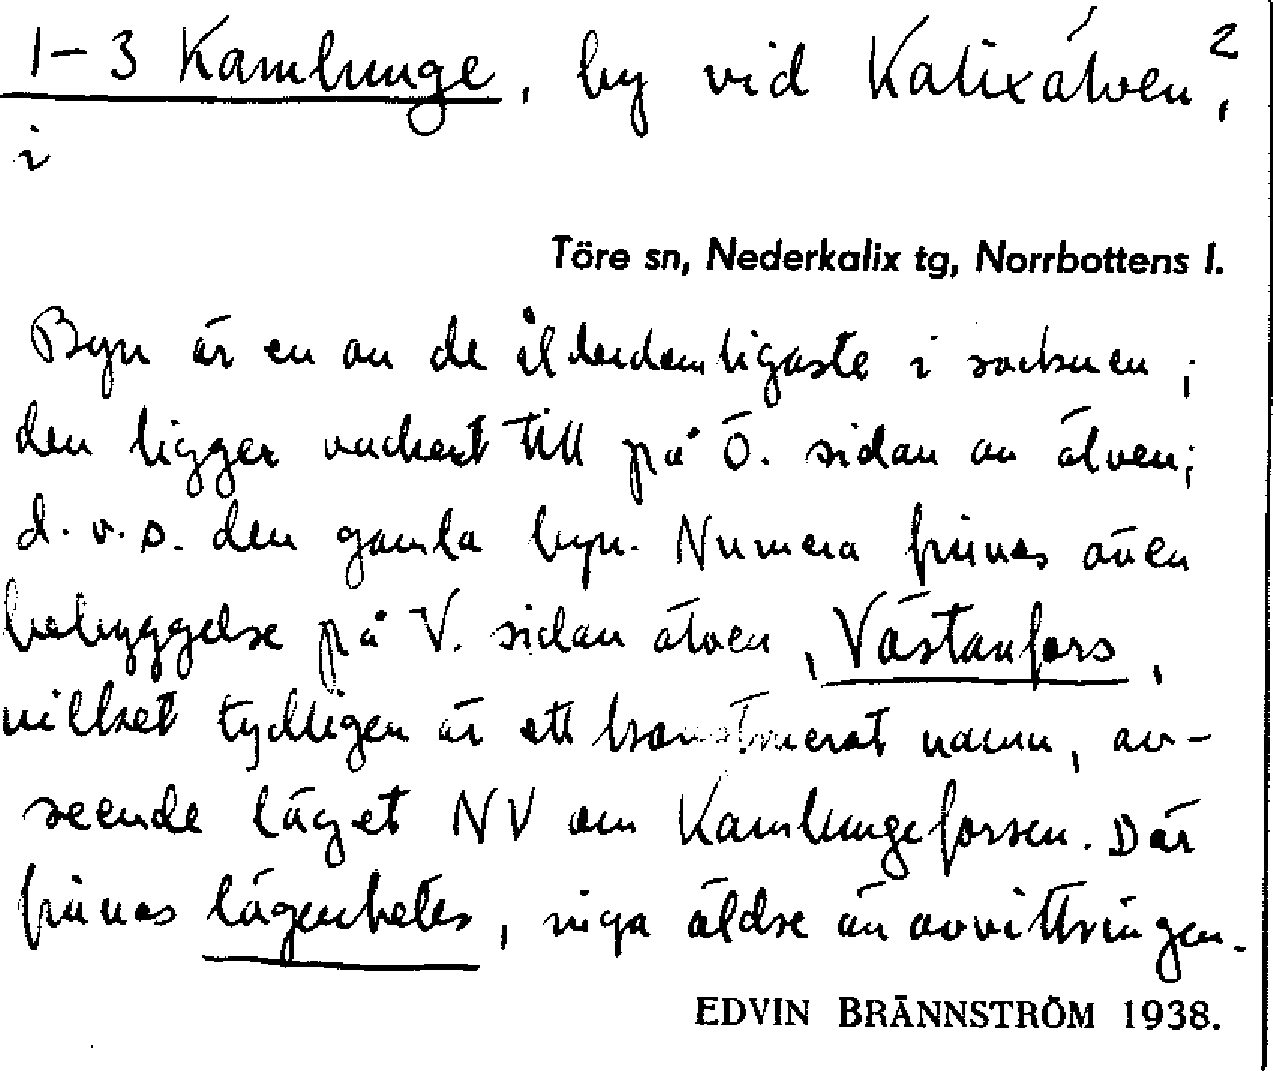 1-3 Kamlunge, by vid Kalixälven, 2
i
Töre sn, Nederkalix tg, Norrbottens l.
Byn är en av de ålderdomligaste i socknen;
den ligger vackert till på Ö. sidan av älven;
d.v.s. den gamla byn. Numera finnes även
bebyggelse på V. sidan älven, Västanfors,
vilket tydligen är ett konstruerat namn, av-
seende läget NV om Kamlungeforsen. Där
finnes lägenheter, inga äldre än avvittringen.
EDVIN BRÄNNSTRÖM 1938.